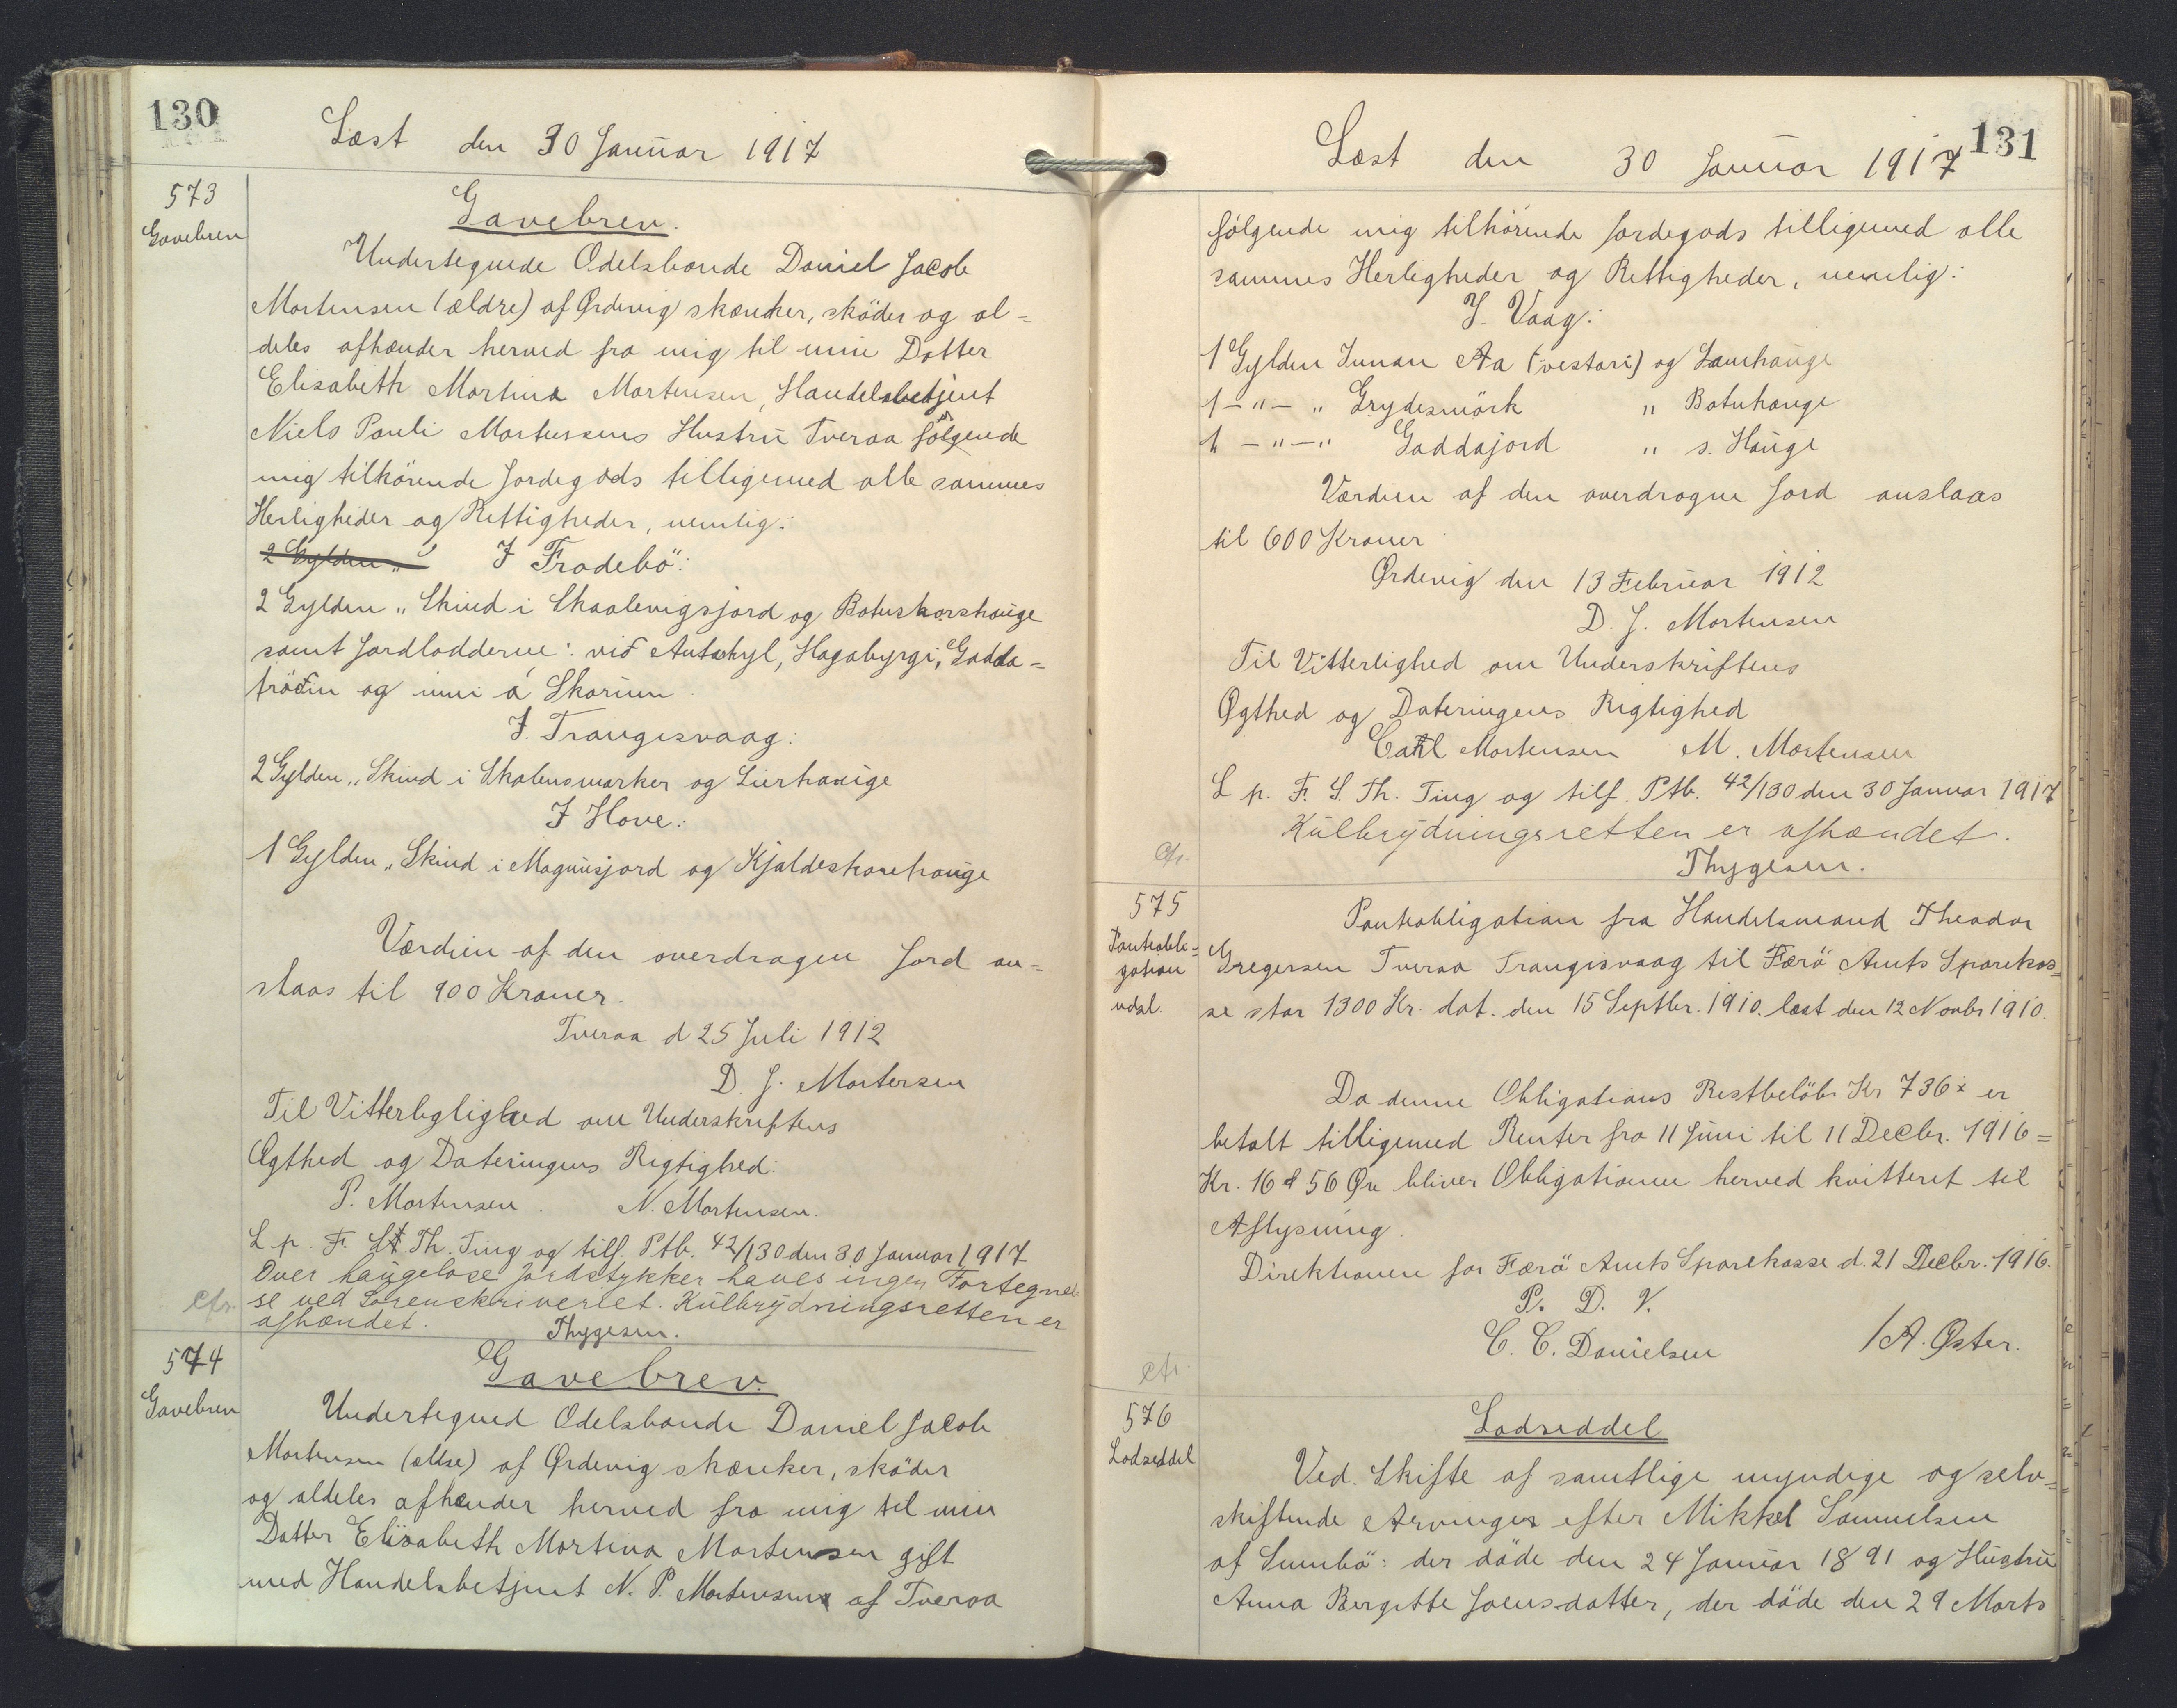 130
Læst den 30 Januar 1917
573
Gavebrev
Gavebrev.
Undertegnede Odelsbonde Daniel Jacob
Mortensen (ældre) af Ørdevig skænker, sköder og al-
deles afhænder herved fra mig til min Datter
Elisabeth Martina Mortensen, Handelsbetjent
Niels Pauli Mortensens Hustru Tveraa fölgende
mig tilhörende Jordegods tilligemed alle sammes
Herligheder og Rettigheder, nemlig:
2 Gylden „ I Frodebö:
2 Gylden „ Skind i Skaalevigsjord og Botnskorshauge
samt Jordlodderne: við Hagabyrgi, Gadda-
tröðin og inni á Skorunn.
I. Trangisvaag:
2 Gylden „ Skind i Skalensmarker og Lierhauge
I Hove:
1 Gylden „ Skind i Magnusjord og Kjaldeskorehauge
Værdien af den overdragen Jord an-
slaas til 900 Kroner.
Tveraa d 25 Juli 1912
D. J. Mortensen
Til Vitterliglighed om Underskriftens
Ægthed og Dateringens Rigtighed:
P. Mortensen. N. Mortensen.
L p. F. S. Th. Ting og tilf. Ptb. 42/130 den 30 Januar 1917
Over haugelose Jordstykker haves ingen Fortegnel
se ved Sorenskriveriet. Kulbrydningsretten er
cfr.
afhændet. Thygesen.
574
Gavebrev
Gavebrev.
Undertegned Odelsbonde Daniel Jacob
Mortensen (ældre) af Ørdevig skænker, sköder
og aldeles afhænder herved fra mig til min
Datter Elisabeth Martina Mortensen gift
med Handelsbetjent N. P. Mortensen af Tveraa
131
Læst den 30 Januar 1917
fölgende mig tilhörende Jordegods tilligemed alle
sammes Herligheder og Rettigheder, nemlig:
I. Vaag:
1 Gylden Innan Aa (vestari) og Lamhauge
1 - " - " Grydesmörk " Botnhauge
1 - " - " Gaddajord " s. Hauge
Værdien af den overdragne Jord anslaas
til 600 Kroner.
Ørdevig den 13 Februar 1912
D. J. Mortensen
Til Vitterlighed om Underskriftens
Ægthed og Dateringens Rigtighed
Carl Mortensen M. Mortensen
L p. F. S. Th. Ting og tilf. Ptb. 42/130 den 30 Januar 1917
Kulbrydningsretten er afhændet.
cfr.
Thygesen.
575
Panteobli-
gation
udsl.
Panteobligation fra Handelsmand Theodor
Gregersen Tveraa Trangisvaag til Færö Amts Sparekas-
se stor 1300 Kr. dat. den 15 Septbr. 1910. læst den 12 Novbr 1910.
Da denne Obligations Restbelöb Kr 736 x er
betalt tilligemed Renter fra 11 Juni til 11 Decbr. 1916 =
Kr. 16 56 Øre bliver Obligationen herved kvitteret til
Aflysning.
Direktionen for Færö Amts Sparekasse d. 21 Decbr. 1916.
P. D. V.
C. C. Danielsen /A. Øster.
cfr.
576
Lodseddel
Lodseddel
Ved Skifte af samtlige myndige og selv-
skiftende Arvinger efter Mikkel Samuelsen
af Sumbö: der döde den 24 Januar 1891 og Hustru
Anna Bergitte Joensdatter, der döde den 29 Marts